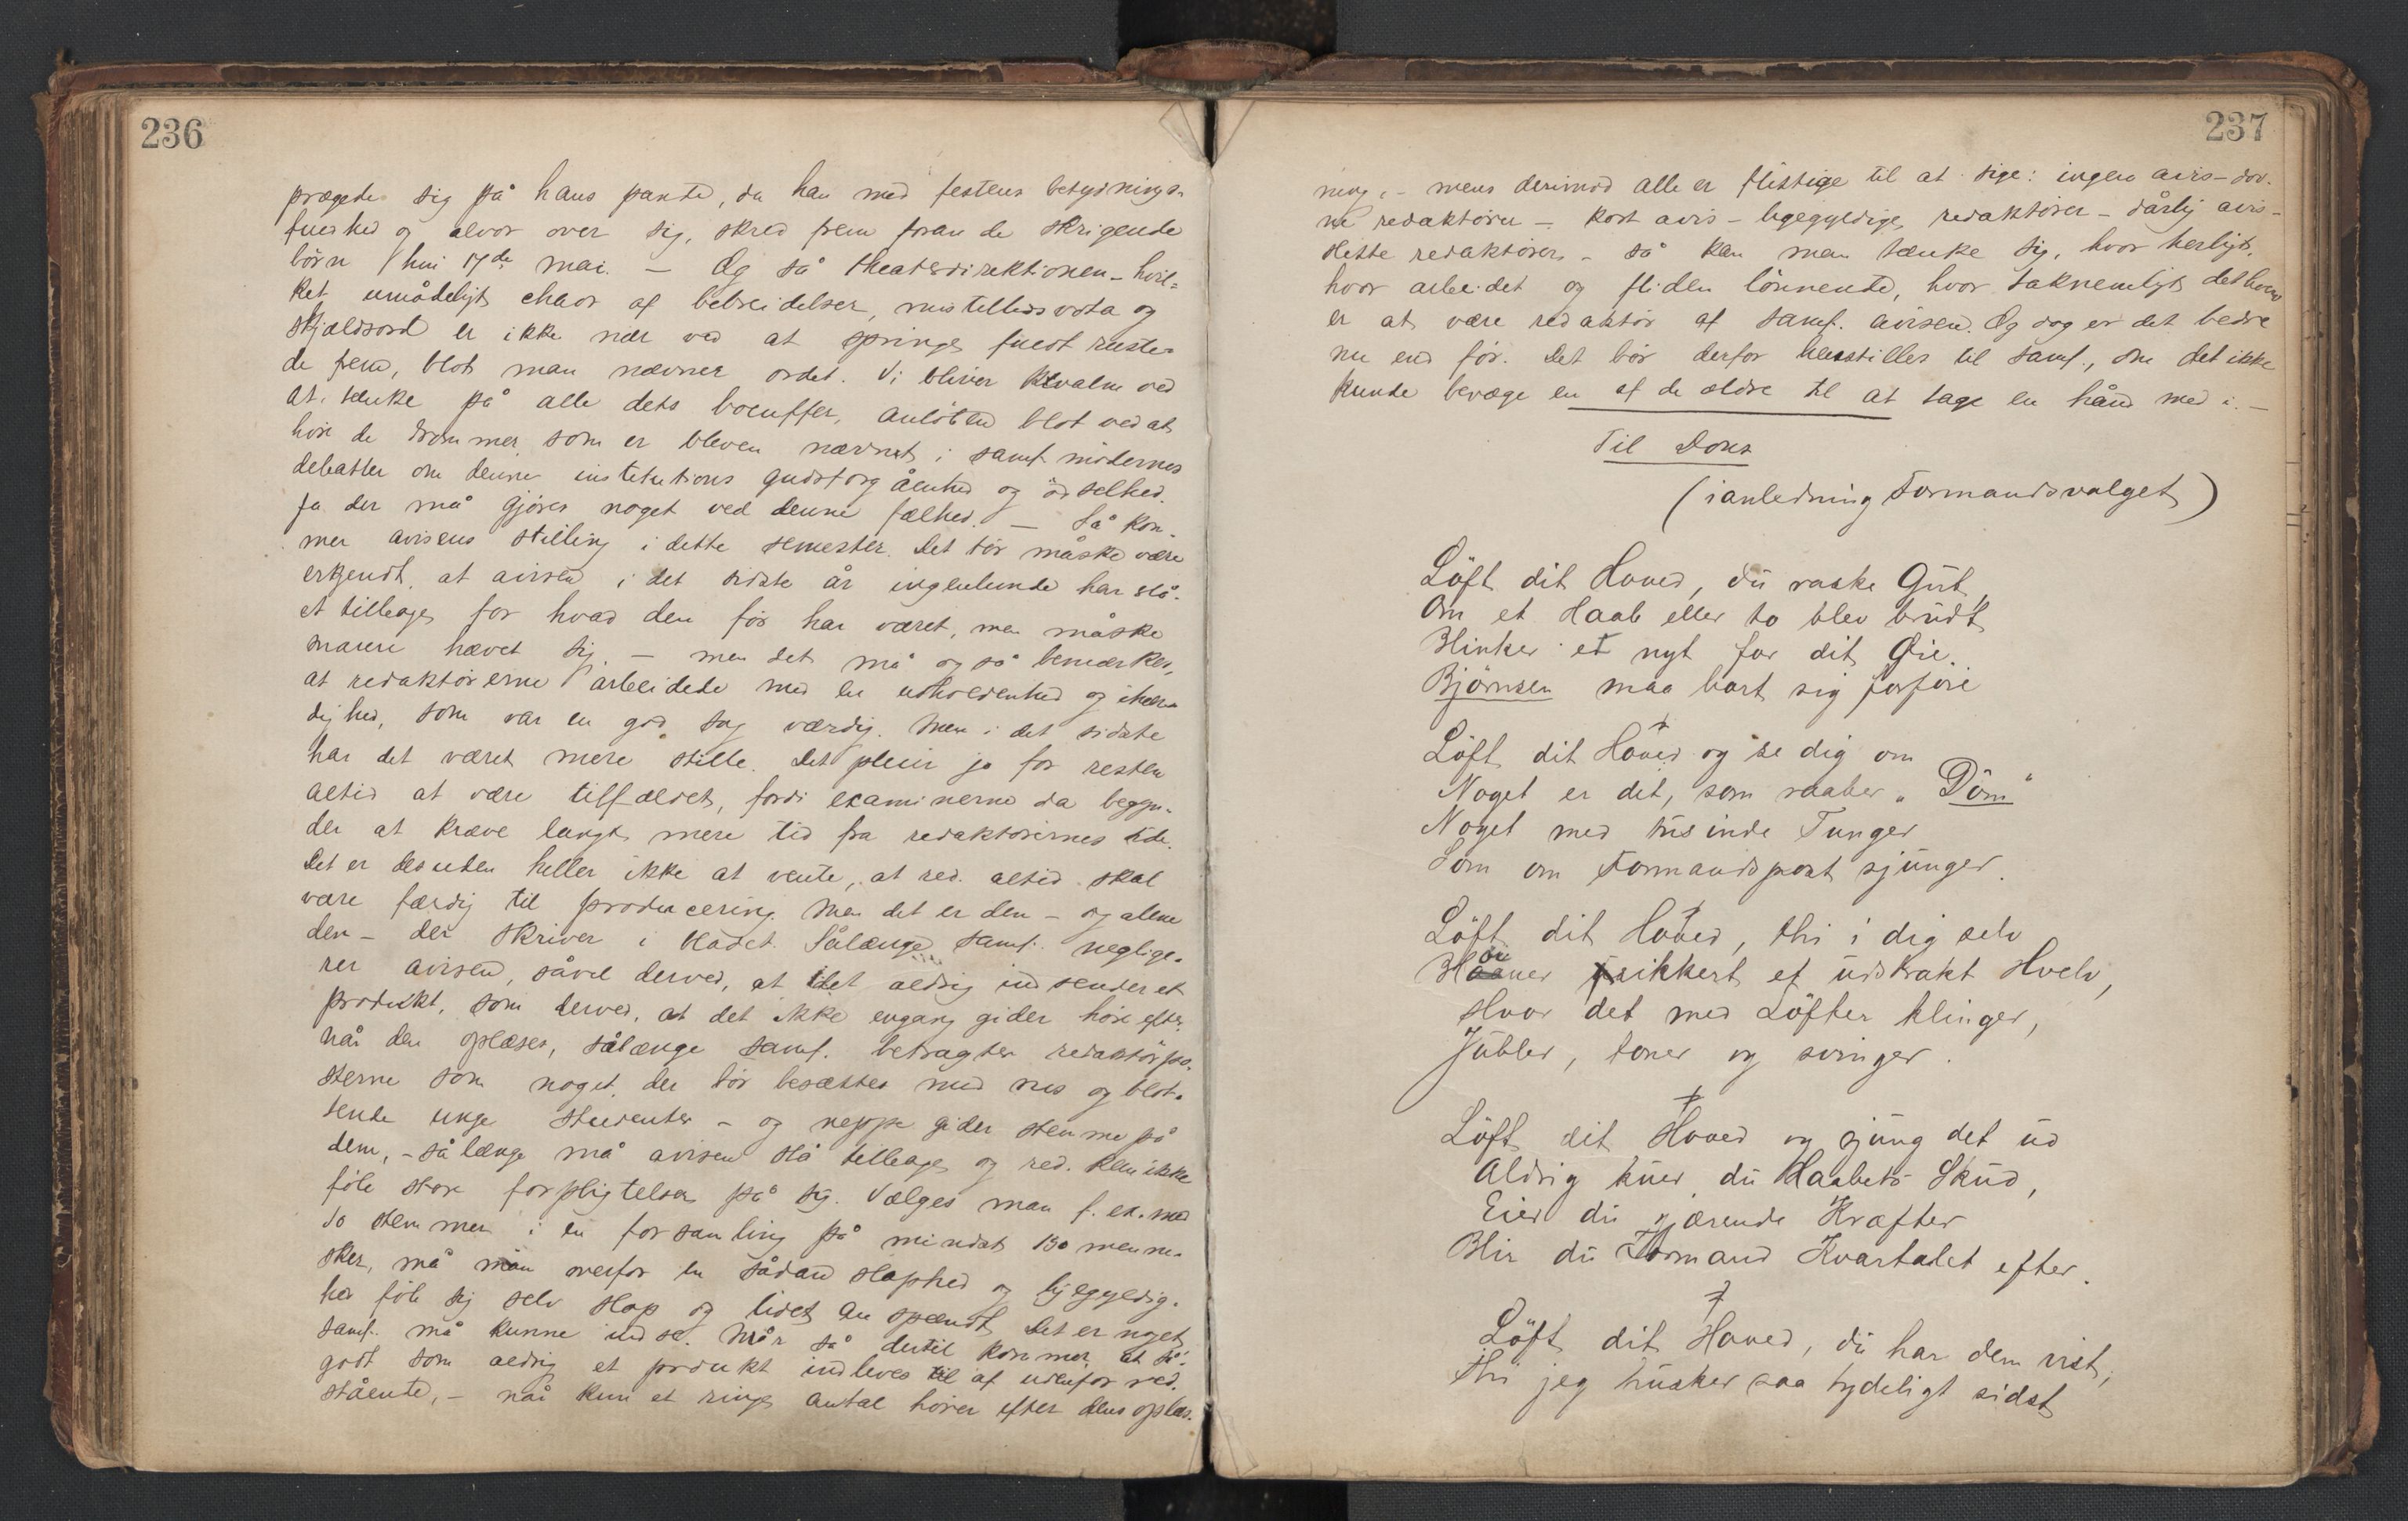 236
prægede sig på hans pande, da han med festens betydnings-
fuldhed og alvor over sig, skred frem foran de skrigende
börn hin 17de mai. — Og så theaterdirektionen - hvil-
ket umådeligt chaos af bebreidelser, mistillidsvota og
skjældsord er ikke nær ved at springe fuldt ruste-
de frem, blot man nævner ordet. Vi bliver kvalm ved
at tænke på alle dets boeuffer, anlöben blot ved at
höre de drommer, som er bleven nævnet i samf. mödernes
debatter om denne institutions gudsforgåenhed og ödselhed.
Ja der må gjöres noget ved denne fælhed. — Så kom-
mer avisens stilling i dette semester. Det tör måske være
erkjendt, at avisen i det sidste år ingenlunde har stå-
et tilbage for hvad den för har været, men måske
snarere hævet sig — men det må også bemærkes,
at redaktörerne arbeidede med en udholdenhed og ihær-
dighed, som var en god sag værdig. Men i det sidste
har det været mere stille. Det pleier jo for resten
altid at være tilfældet, fordi examinerne da begyn-
der at kræve langt mere tid fra redaktörernes side.
Det er desuden heller ikke at vente, at red. altid skal
være færdig til producering. Men det er den - og alene
den - der skriver i bladet. Sålænge samf. neglige-
rer avisen, såvel derved, at det aldrig indsender et
produkt, som derved, at det ikke engang gider höre efter,
når den oplæses, sålænge samf. betragter redaktörpo-
sterne som noget, der bör besættes med rus og blot-
tende unge studenter - og neppe gider stemme på
dem, - så længe må avisen stå tilbage og red. kan ikke
föle store forpligtelser på sig. Vælges man f. ex. med
10 stemmer i en forsamling på mindst 130 menne-
sker, må man overfor en sådan slaphed og ligegyldig-
hed föle sig selv slap og lidet anspændt. Det er noget
samf. må kunne indse. Når så dertil kommer, at så-
godt som aldrig et produkt indleveres til af udenfor red.
stående, - når kun et ringe antal hörer efter dens oplæs-
237
ning, - mens derimod alle er flittige til at sige: ingen avis - dov-
ne redaktörer - kort avis - ligegyldige redaktörer - dårlig avis -
slette redaktörer - så kan man tænke sig, hvor herligt,
hvor arbeidet og fliden lönnende, hvor taknemligt det hverv
er at være redaktör af samf. avisen. Og dog er det bedre
nu end för. Det bör derfor henstilles til samf., om det ikke
kunde bevæge en af de ældre til at tage en hånd med i. —
Til Dons
(i anledning Formandsvalget)
Löft dit Hoved, du raske Gut,
Om et Haab eller to blev brudt
Blinker et nyt for dit Øie.
Björnsen maa bort sig forföie
Löft dit Hoved og se dig om
Noget er det, som raaber „Döm"
Noget med tusinde Tunger
Som om Formandspost sjunger.
Löft dit Hoved, thi i dig selv
sikkert et udstrakt Hvelv,
Hvor det med Löfter klinger,
Jubler, toner og svinger.
Löft dit Hoved og sjung det ud
Aldrig kuer du Haabets Skud,
Eier du gjærende Kræfter
Blir du Formand Kvartalet efter.
Löft dit Hoved, du har dem vist,
Thi jeg husker saa tydeligt sidst